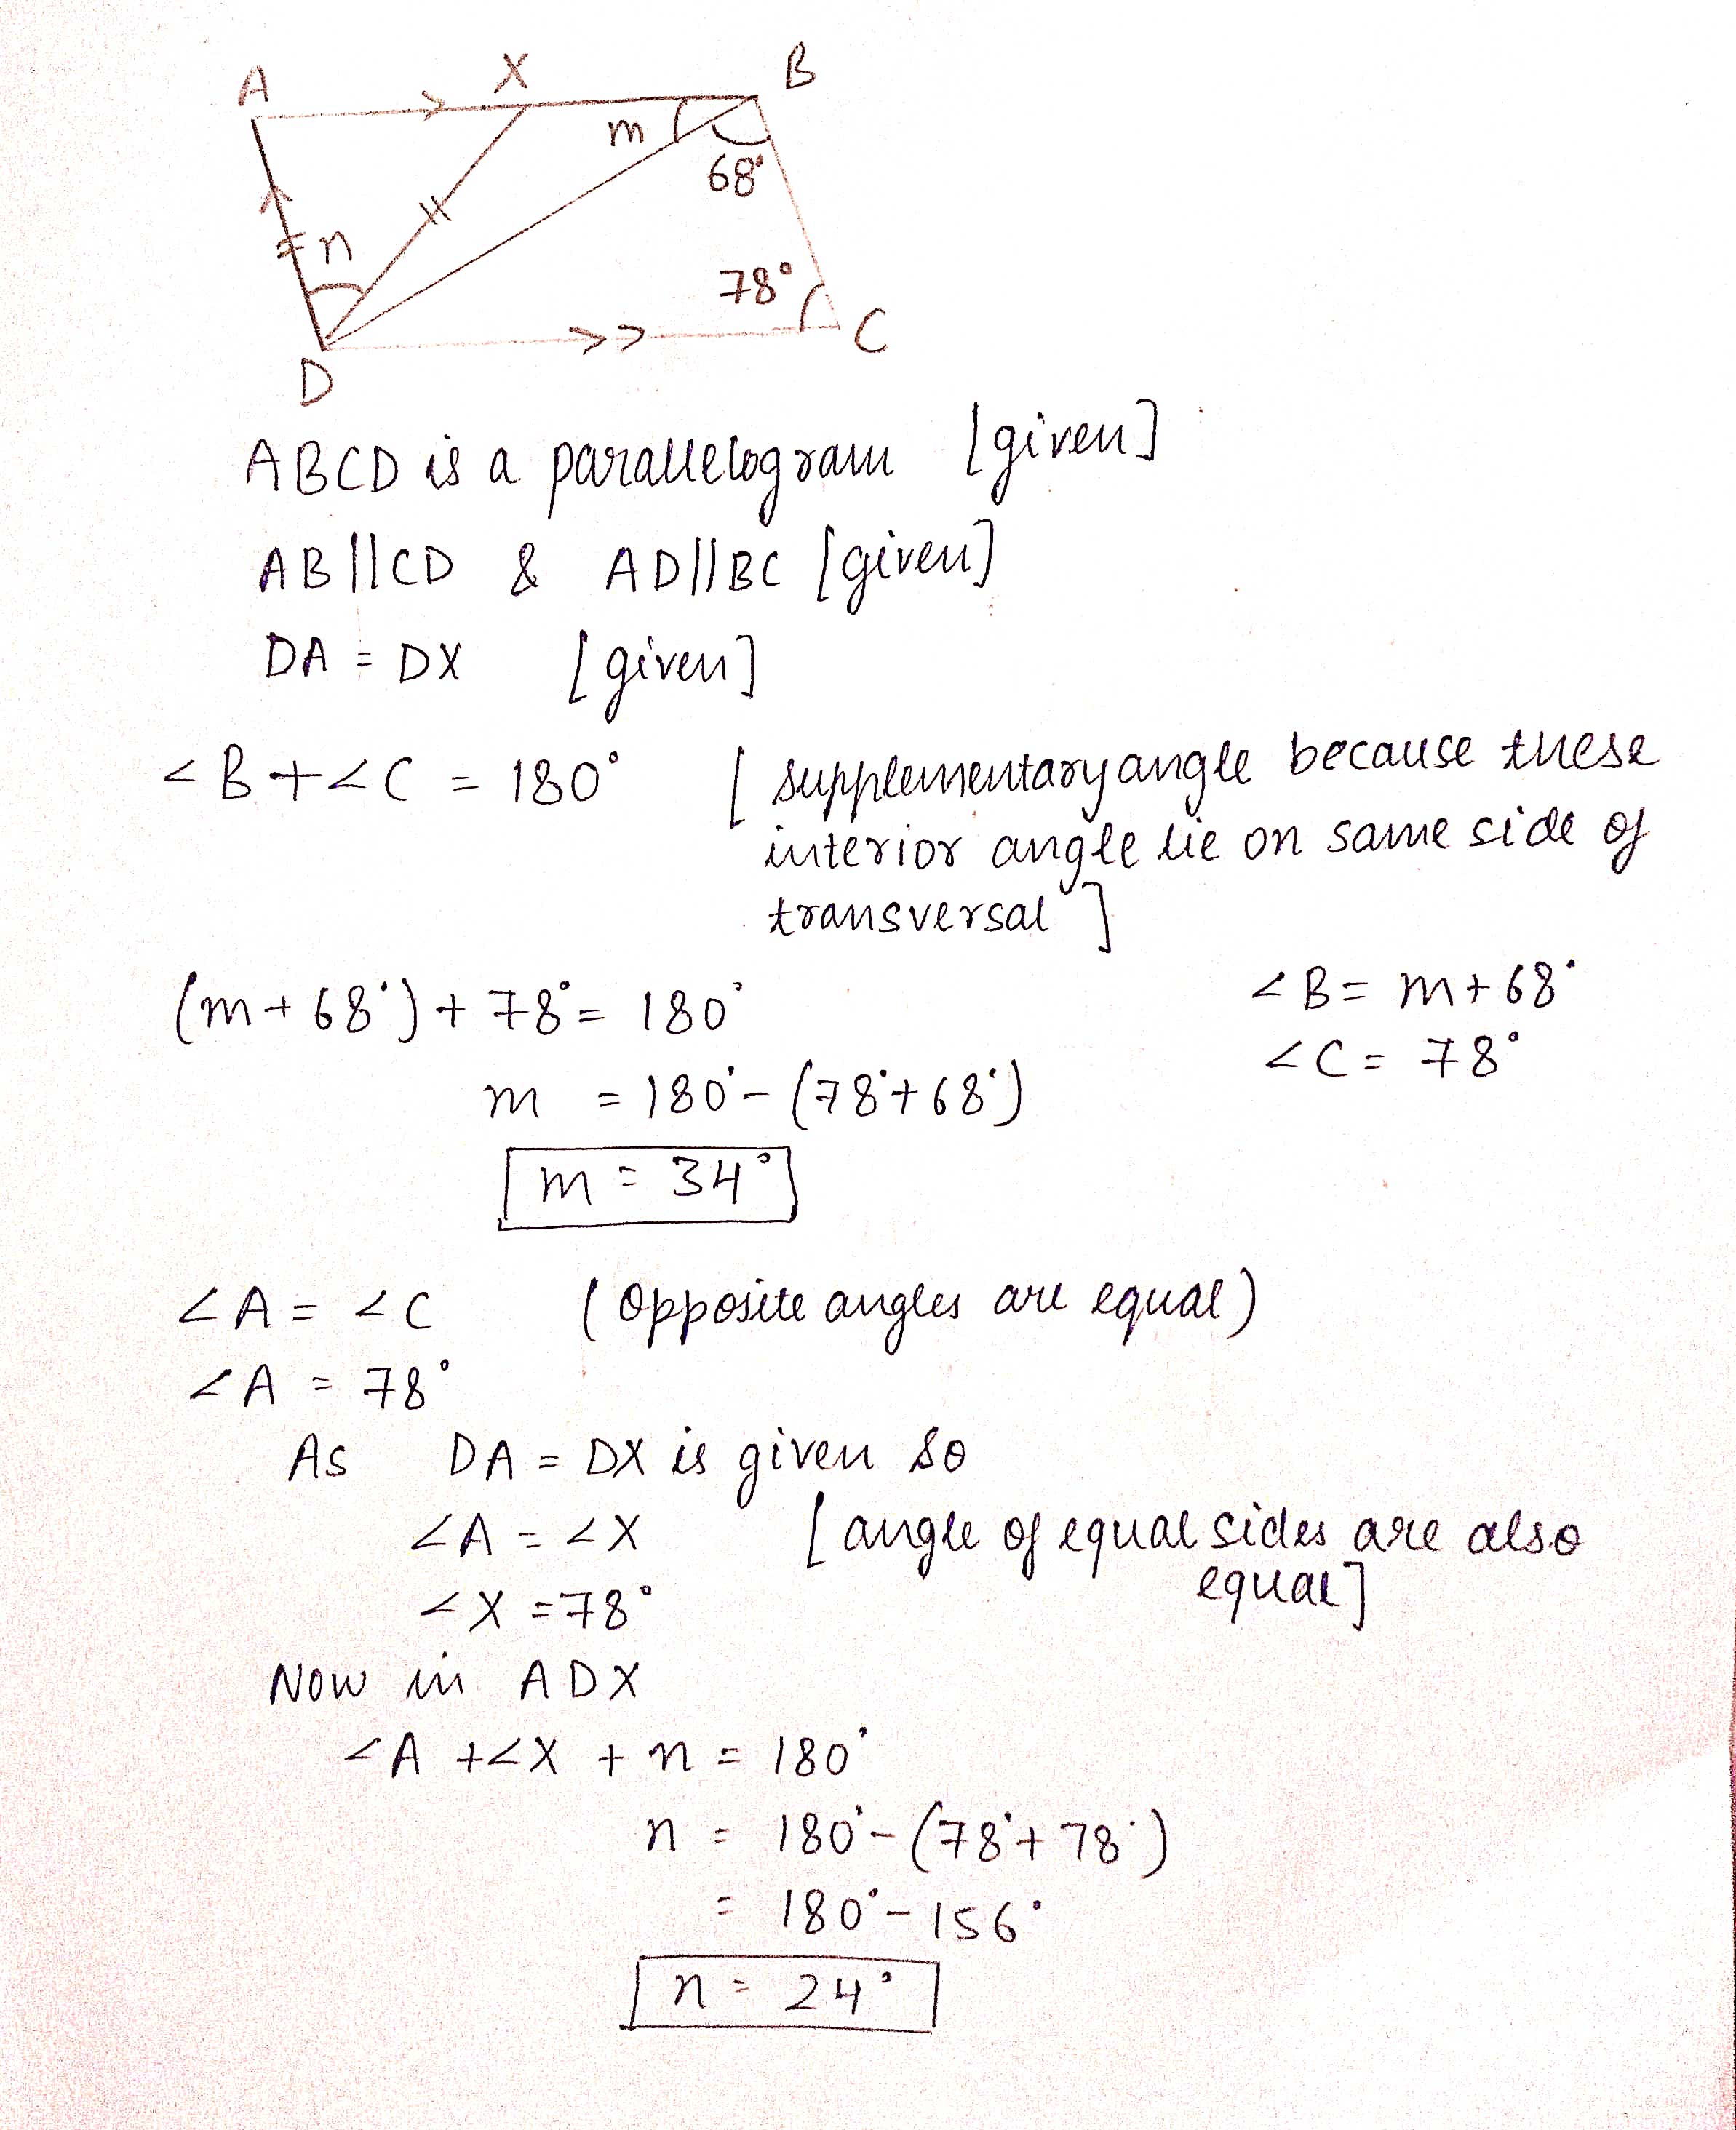 A X B
m
68°
n
78°
C
D
ABCD is a parallelogram [given]
AB||CD & AD||BC [given]
DA = DX [given]
<B+<C = 180° [supplementary angle because these
interior angle lie on same side of
transversal]
(m+68°)+78°= 180° <B= m+68°
<C= 78°
m = 180°-(78°+68°)
m = 34°
<A = <C (opposite angles are equal)
<A = 78°
As DA = DX is given so
<A = <X [angle of equal sides are also
equal]
<X =78°
Now in ADX
<A +<X + n = 180°
n = 180°-(78°+78°)
= 180°-156°
n = 24°